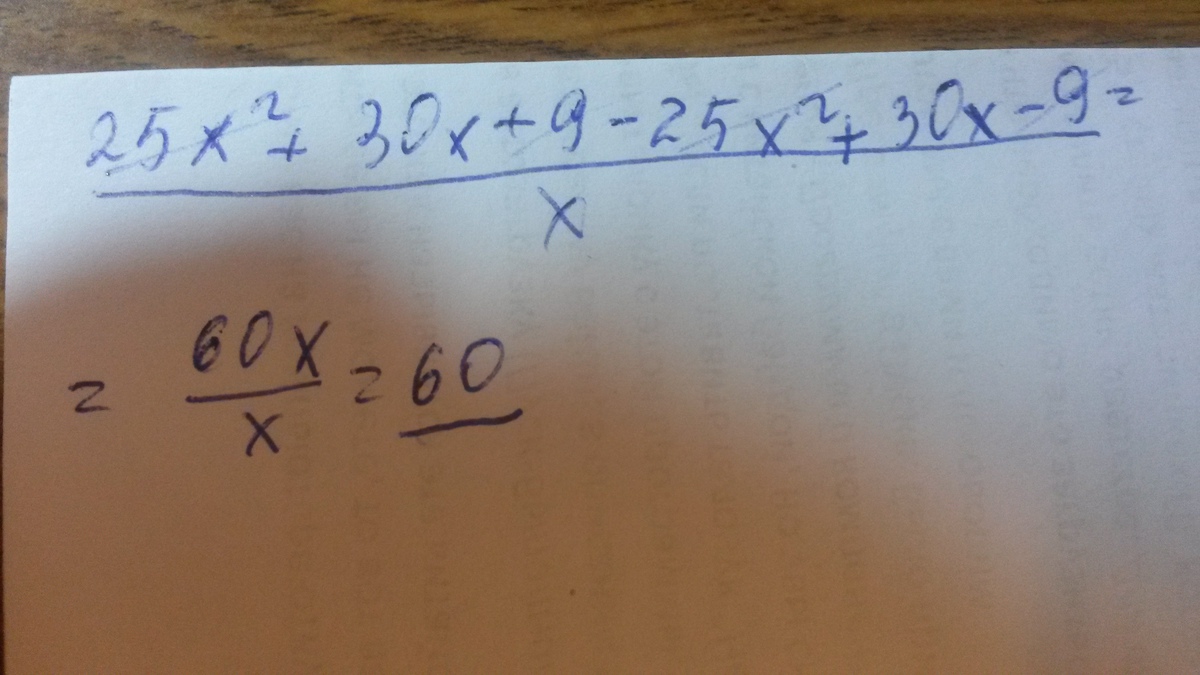 25x² + 30x + 9 - 25x² + 30x - 9 =
x
= 60x/x = 60